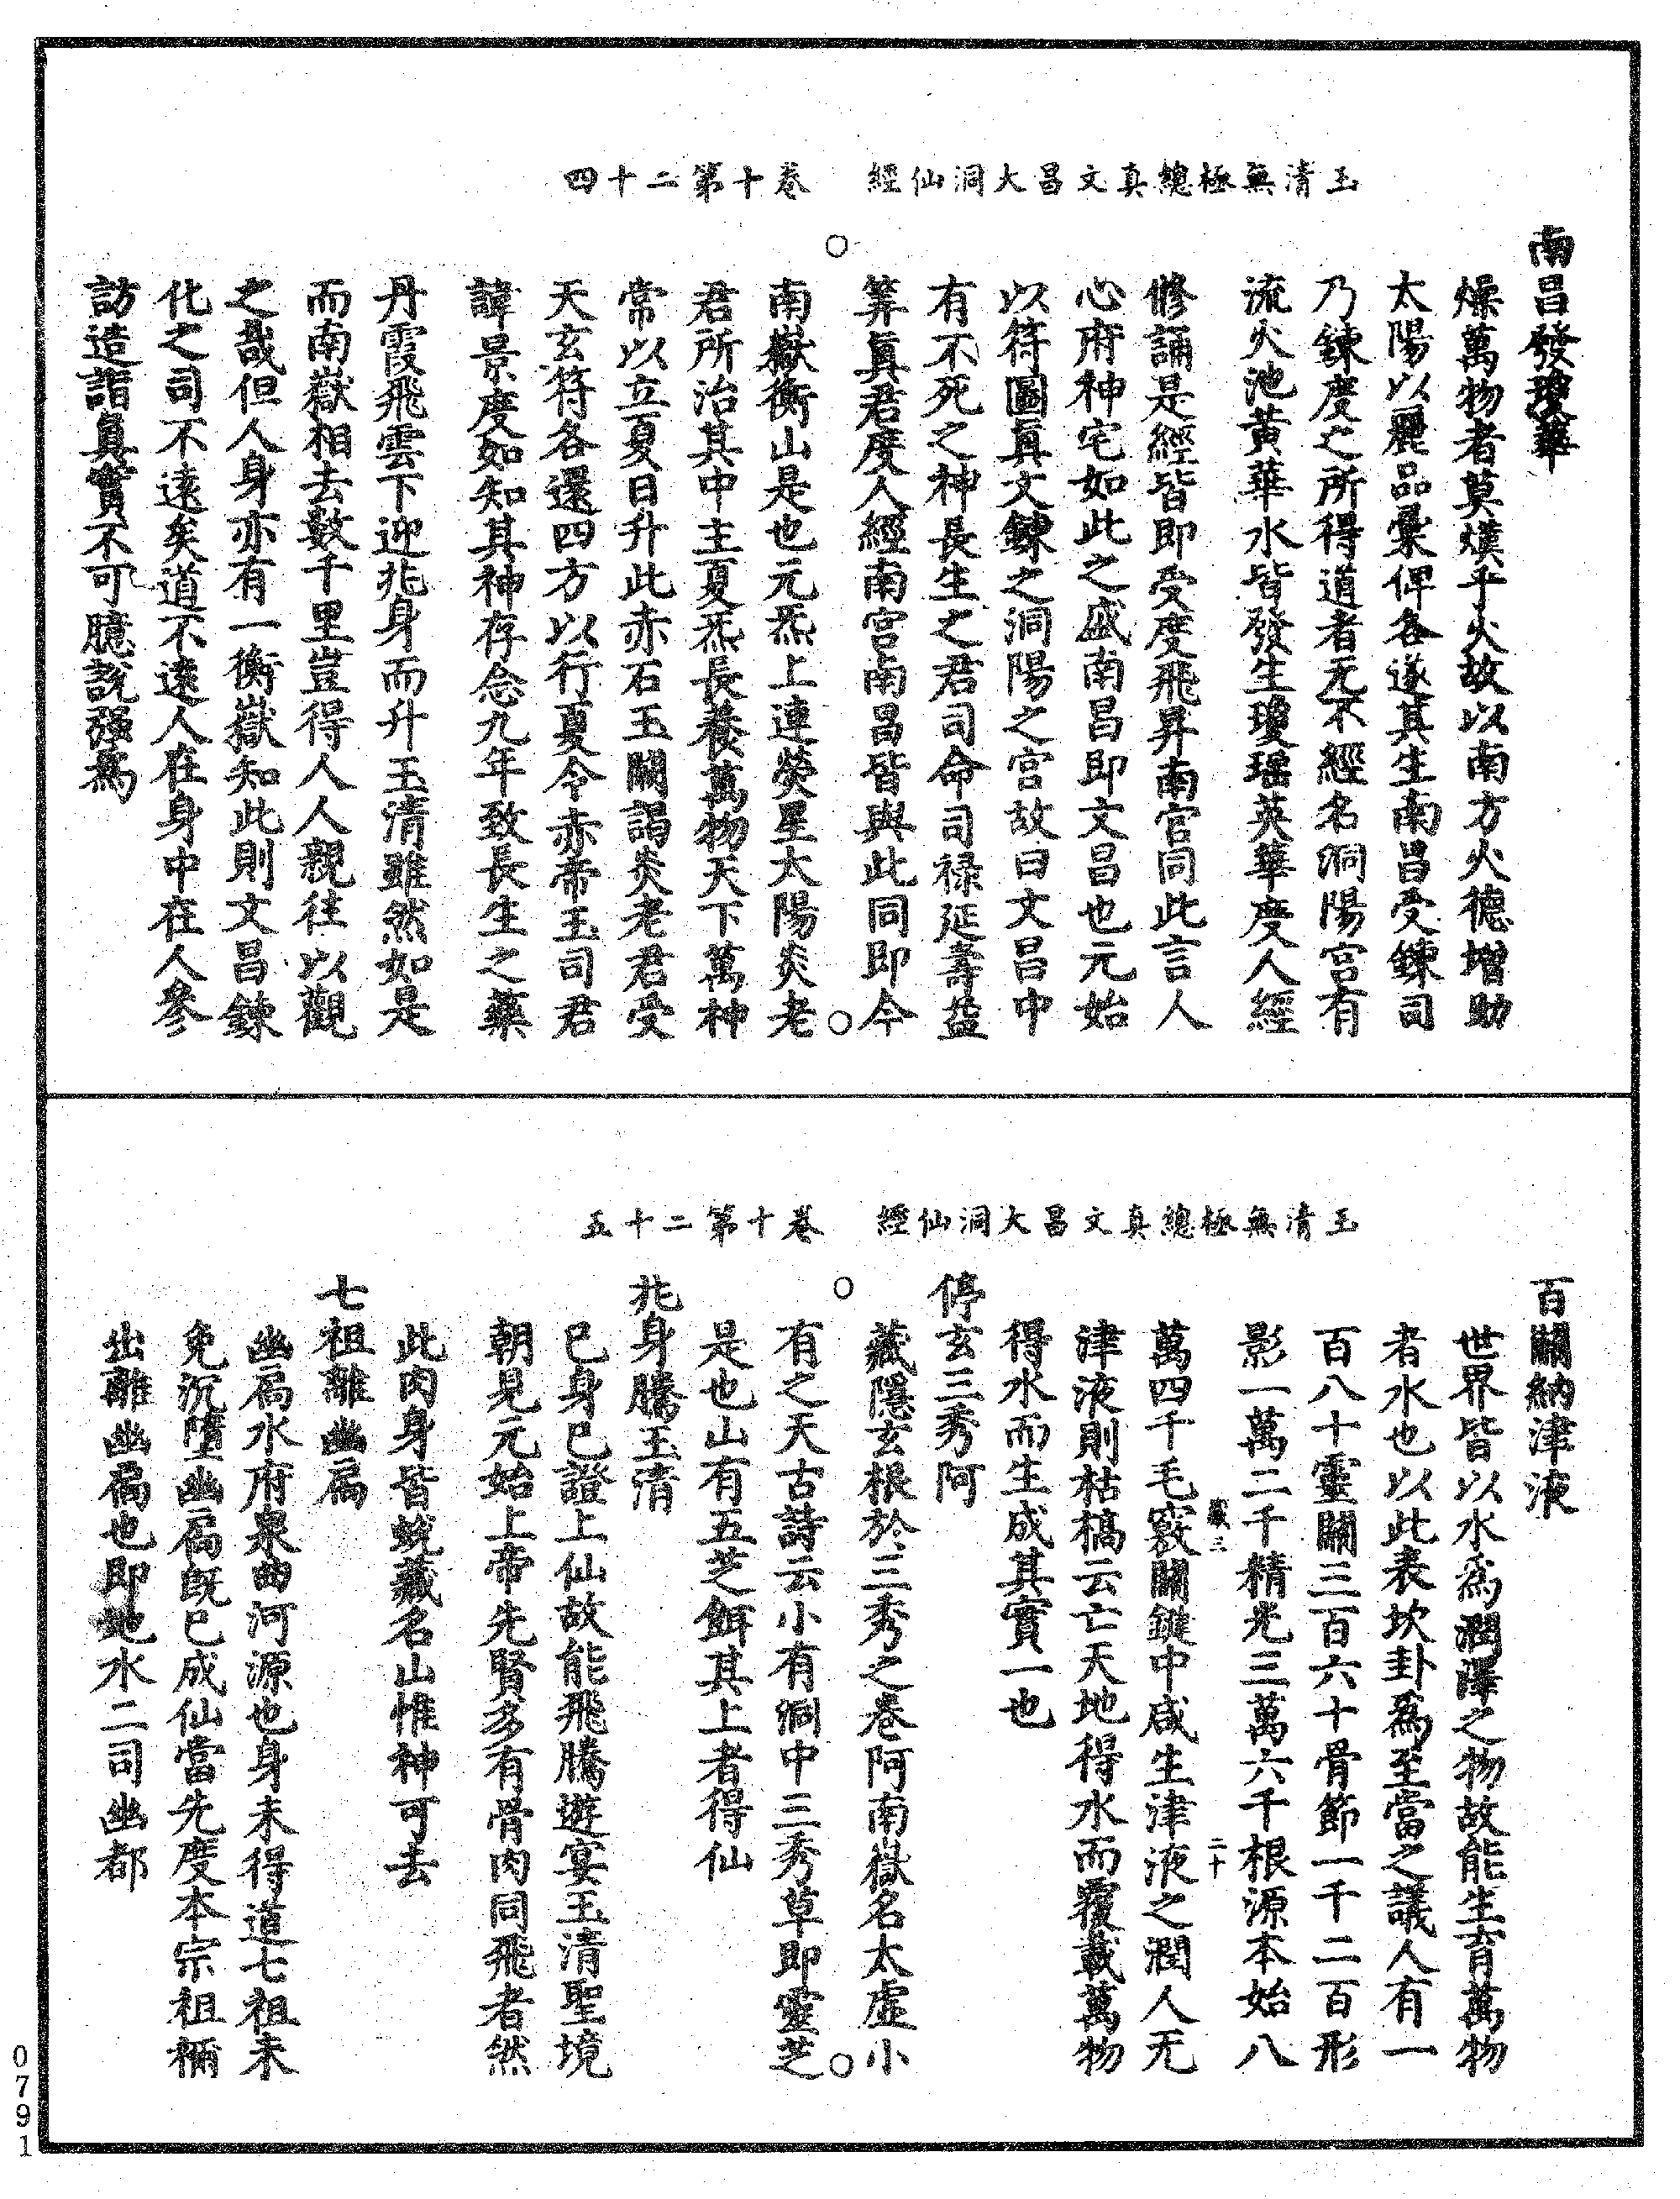 玉清無極總真文昌大洞仙經　卷十第二十四
南昌發瓊華
燥萬物者莫熯乎火故以南方火德增助
太陽以麗品彙俾各遂其生南昌受鍊司
乃鍊度之所得道者无不經名洞陽宮有
流火池黃華水皆發生瓊瑶英華度人經
修誦是經皆即受度飛昇南宮同此言人
心府神宅如此之盛南昌即文昌也元始
以符圖眞文鍊之洞陽之宮故曰文昌中
有不死之神長生之君司命司禄延壽益
筭眞君度人經南宮南昌皆與此同即今
南嶽衡山是也元炁上連熒星太陽炎老
君所治其中主夏炁長養萬物天下萬神
常以立夏日升此赤石玉闕謁炎老君受
天玄符各還四方以行夏令赤帝玉司君
諱景度如知其神存念九年致長生之藥
丹霞飛雲下迎兆身而升玉清雖然如是
而南嶽相去數千里豈得人人親往以觀
之哉但人身亦有一衡嶽知此則文昌鍊
化之司不遠矣道不遠人在身中在人參
訪造詣眞實不可臆說强爲
玉清無極總真文昌大洞仙經　卷十第二十五
百關納津液
世界皆以水爲潤澤之物故能生育萬物
者水也以此表坎卦爲至當之議人有一
百八十靈關三百六十骨節一千二百形
影一萬二千精光三萬六千根源本始八
萬四千毛竅關鍵中咸生津液之潤人无
津液則枯槁云亡天地得水而覆載萬物
得水而生成其實一也
停玄三秀阿
藏隱玄根於三秀之巷阿南嶽名太虛小
有之天古詩云小有洞中三秀草即靈芝
是也山有五芝餌其上者得仙
兆身騰玉清
已身已證上仙故能飛騰遊宴玉清聖境
朝見元始上帝先賢多有骨肉同飛者然
此肉身皆蛻藏名山惟神可去
七祖離幽扃
幽扃水府泉曲河源也身未得道七祖未
免沉墮幽扃旣已成仙當先度本宗祖禰
出離幽扃也即地水二司幽都
二十
0791